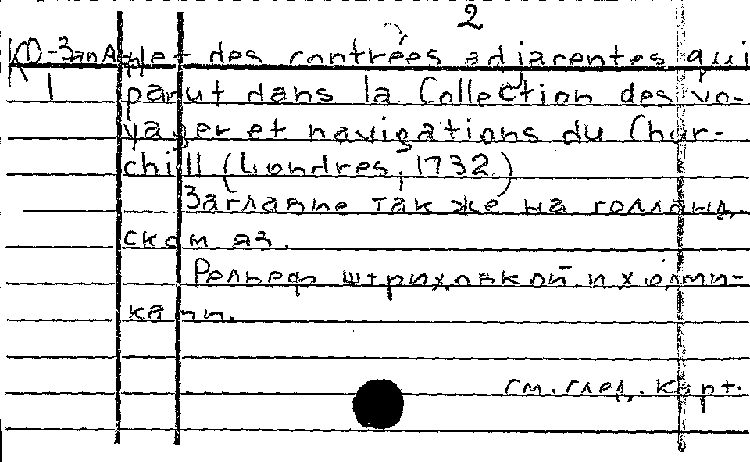 2
КО-ЗапАф let des contrées adjacentes qui
1 parut dans la Collection des vo-
yager et navigations du Chur-
chill (Londres, 1732)
Заглавие так же на голланд.
ском яз.
Рельеф штриховкой и холми-
ками.
см. след. карт.